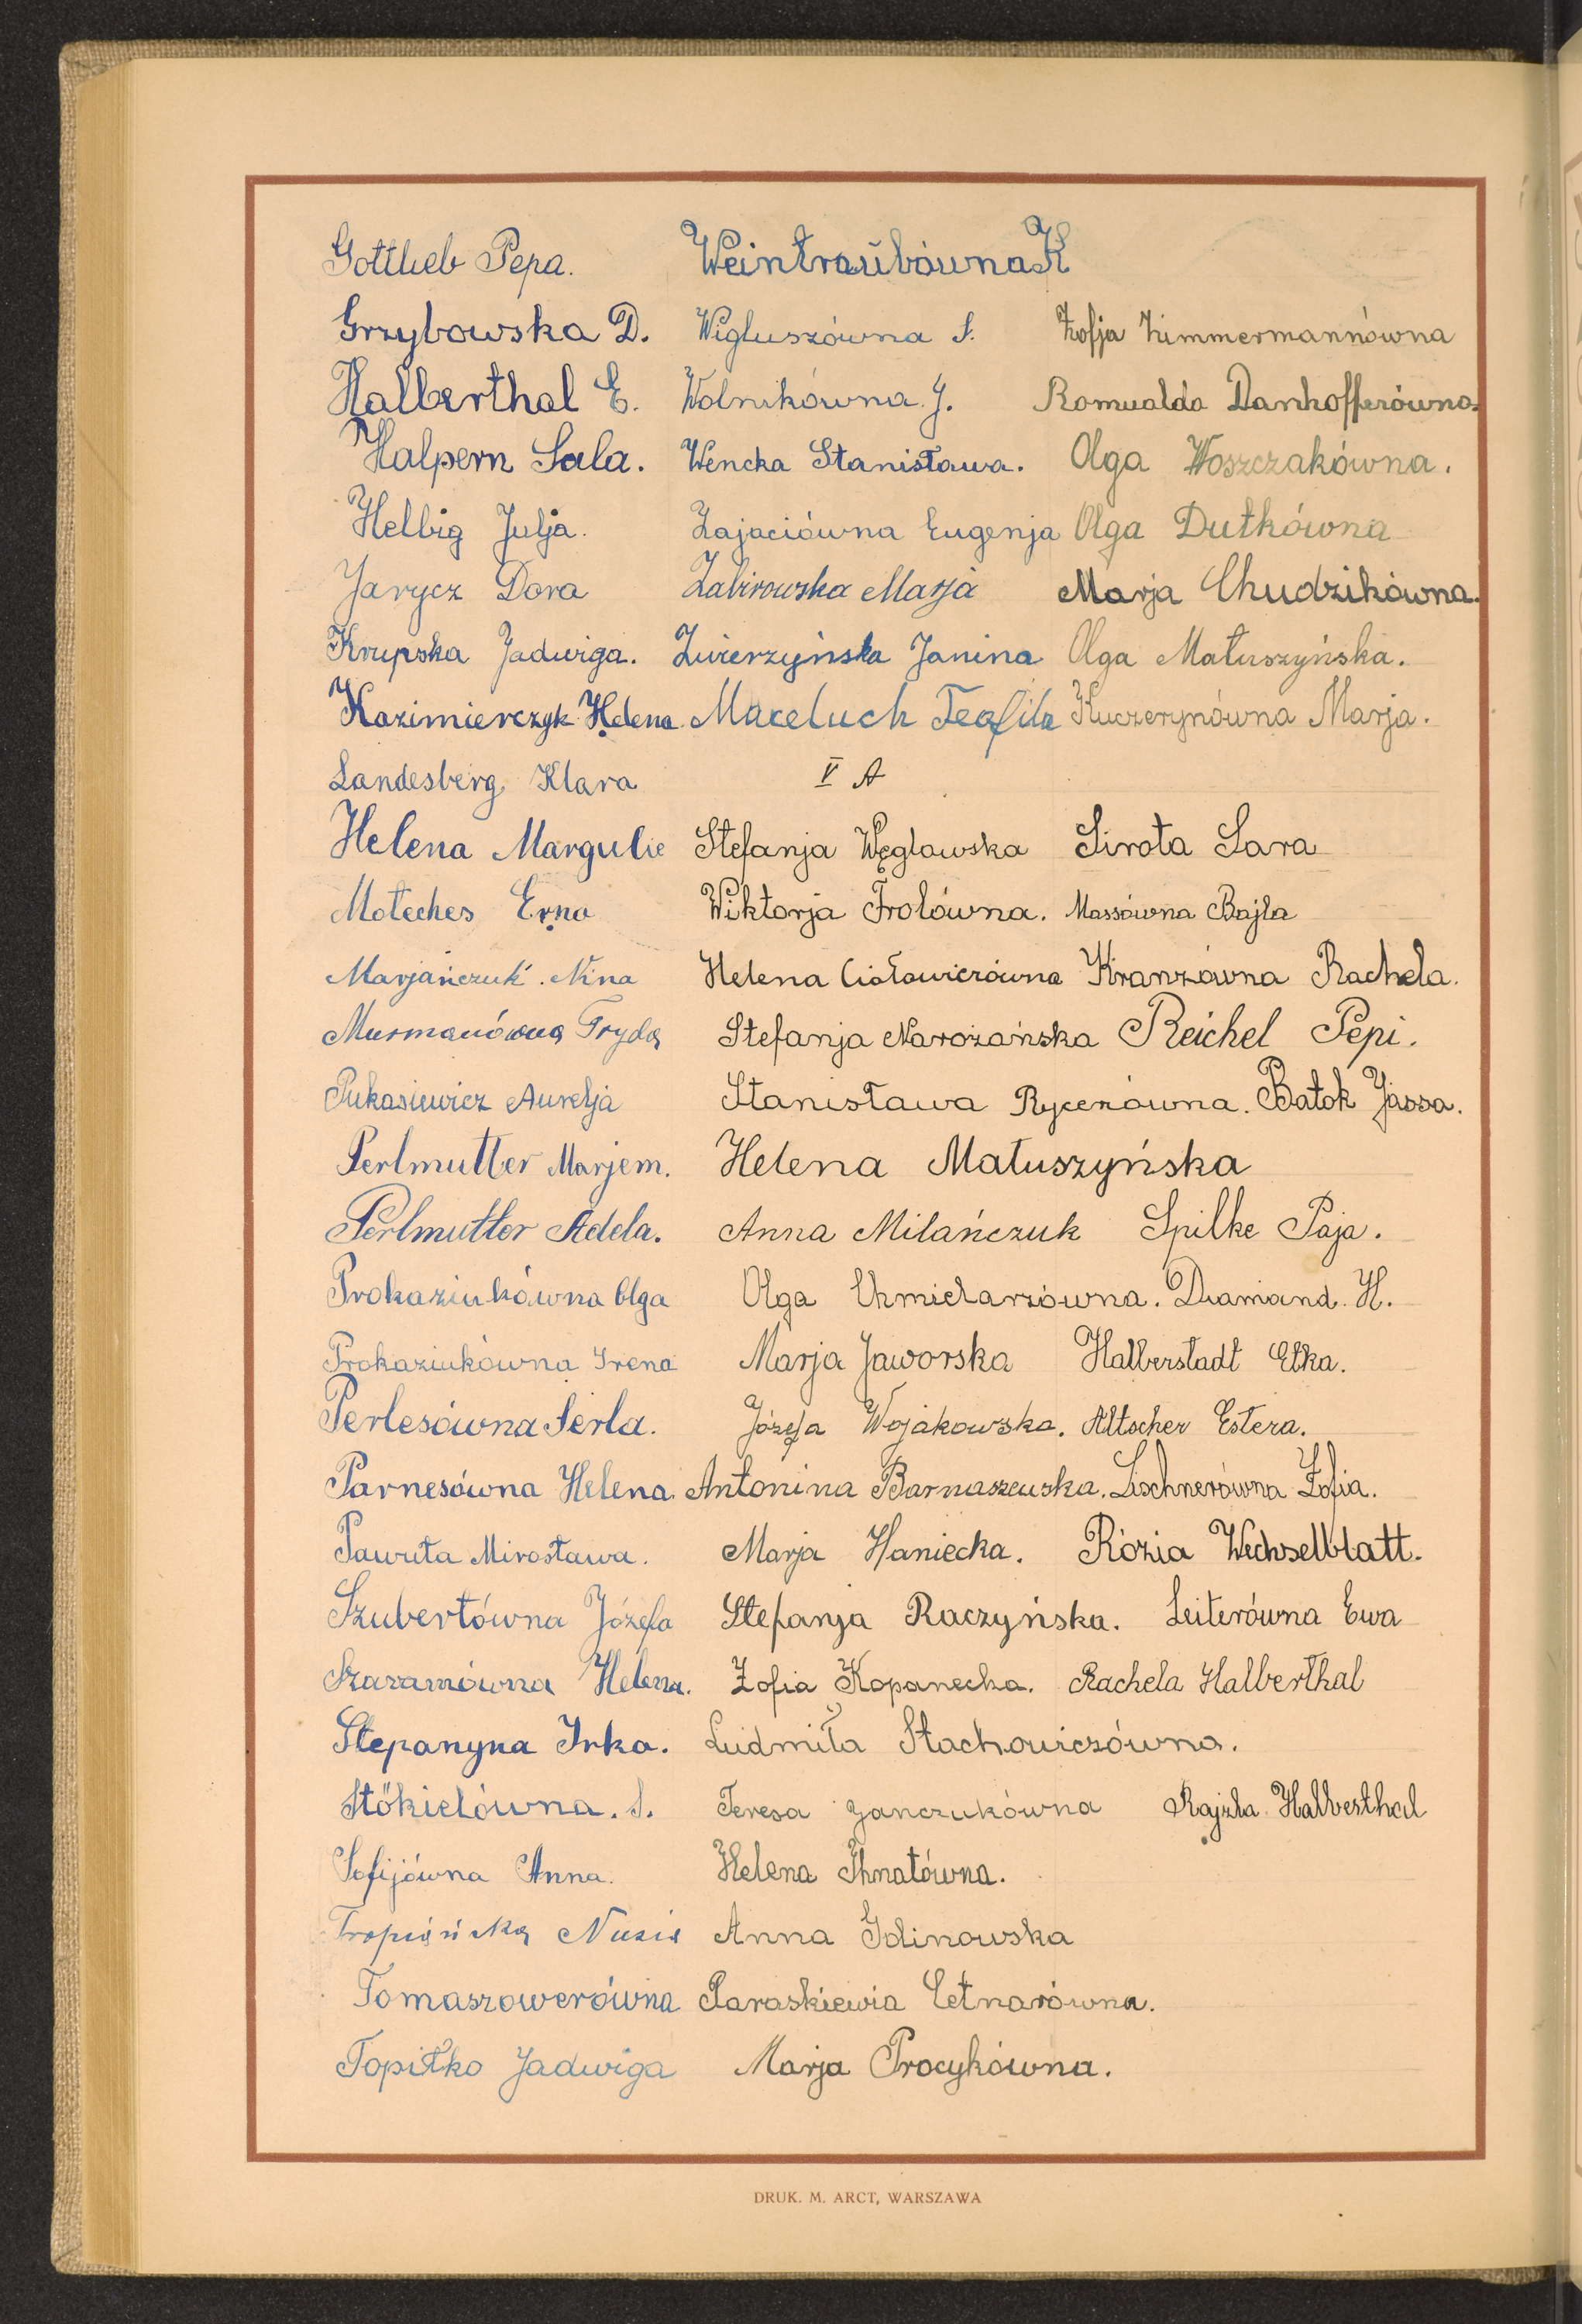 Gottlieb Pepa. Weintraubówna K
Grzybowska D. Wigluszówna S. Zofja Zimmermannówna
Halberthal E. Wolnikówna J. Romualda Dankofferówna.
Halpern Sala. Wencka Stanisława. Olga Woszczakówna.
Helbig Julja. Zajaciówna Eugenja Olga Dutkówna
Jarycz Dora Zabirowska Marja Marja Chudzikówna.
Krupska Jadwiga. Zwierzyńska Janina Olga Matuszyńska.
Kazimierczyk Helena. Maceluch Teofila Kuczerynówna Marja.
Landesberg Klara V A
Helena Margulie Stefanja Węglowska Sirota Sara
Moteches Erna Wiktorja Frolówna. Massówna Bajla
Marjańczuk. Nina Helena Ciołowiczówna Kranzówna Rachela.
Murmanówna Fryda Stefanja Narożańska Reichel Pepi.
Pukasiewicz Aurelja Stanisława Rycerówna. Batok Jassa.
Perlmutter Marjem. Helena Matuszyńska
Perlmutter Adela. Anna Milańczuk Spilke Paja.
Prokaziukówna Olga Olga Chmielarzówna. Diamand. H.
Prokaziukówna Irena Marja Jaworska Halberstadt Etka.
Perlesówna Perla. Józefa Wojakowska. Altscher Estera.
Parnesówna Helena. Antonina Barnaszewska. Lischnerówna Zofia.
Pawuta Mirosława. Marja Haniecka. Rózia Wechselblatt.
Szubertówna Józefa Stefanja Raczyńska. Leiterówna Ewa
Szaramówna Helena. Zofia Kopanecka. Rachela Halberthal
Stepanyna Irka. Ludmiła Stachowiczówna.
Stökielówna. S. Teresa Janczukówna Rajzla Halberthal
Sofijówna Anna. Helena Ihnatówna.
Tropiańska Nusia Anna Idinowska
Tomaszowerówna Paraskiewia Cetnarówna.
Topiłko Jadwiga Marja Procykówna.
DRUK. M. ARCT, WARSZAWA